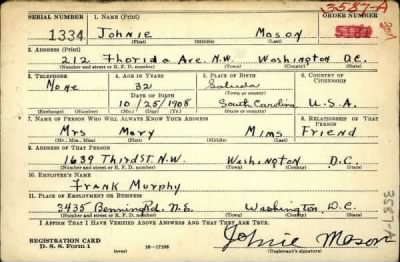 3587-A
SERIAL NUMBER 1. NAME (Print) ORDER NUMBER
1334 Johnie Mason
(First) (Middle) (Last)
2. ADDRESS (Print)
212 Fhorida Ave. N.W. Washington D.C.
(Number and street or R. F. D. number) (Town) (County) (State)
3. TELEPHONE 4. AGE IN YEARS 5. PLACE OF BIRTH 6. COUNTRY OF CITIZENSHIP
None 32 Saluda
DATE OF BIRTH (Town or county)
10/25/1908 South Carolina U.S.A.
(Exchange) (Number) (Mo.) (Day) (Yr.) (State or country)
7. NAME OF PERSON WHO WILL ALWAYS KNOW YOUR ADDRESS 8. RELATIONSHIP OF THAT PERSON
Mrs Mary Mims Friend
(Mr., Mrs., Miss) (First) (Middle) (Last)
9. ADDRESS OF THAT PERSON
1639 Third St. N.W. Washington D.C.
(Number and street or R. F. D. number) (Town) (County) (State)
10. EMPLOYER'S NAME
Frank Murphy
11. PLACE OF EMPLOYMENT OR BUSINESS
3435 Benning Rd. N.E. Washington, D.C.
(Number and street or R. F. D. number) (Town) (County) (State)
I AFFIRM THAT I HAVE VERIFIED ABOVE ANSWERS AND THAT THEY ARE TRUE.
REGISTRATION CARD
D. S. S. Form 1 (over) 16—17195 Johnie Mason
(Registrant's signature)
3587-A